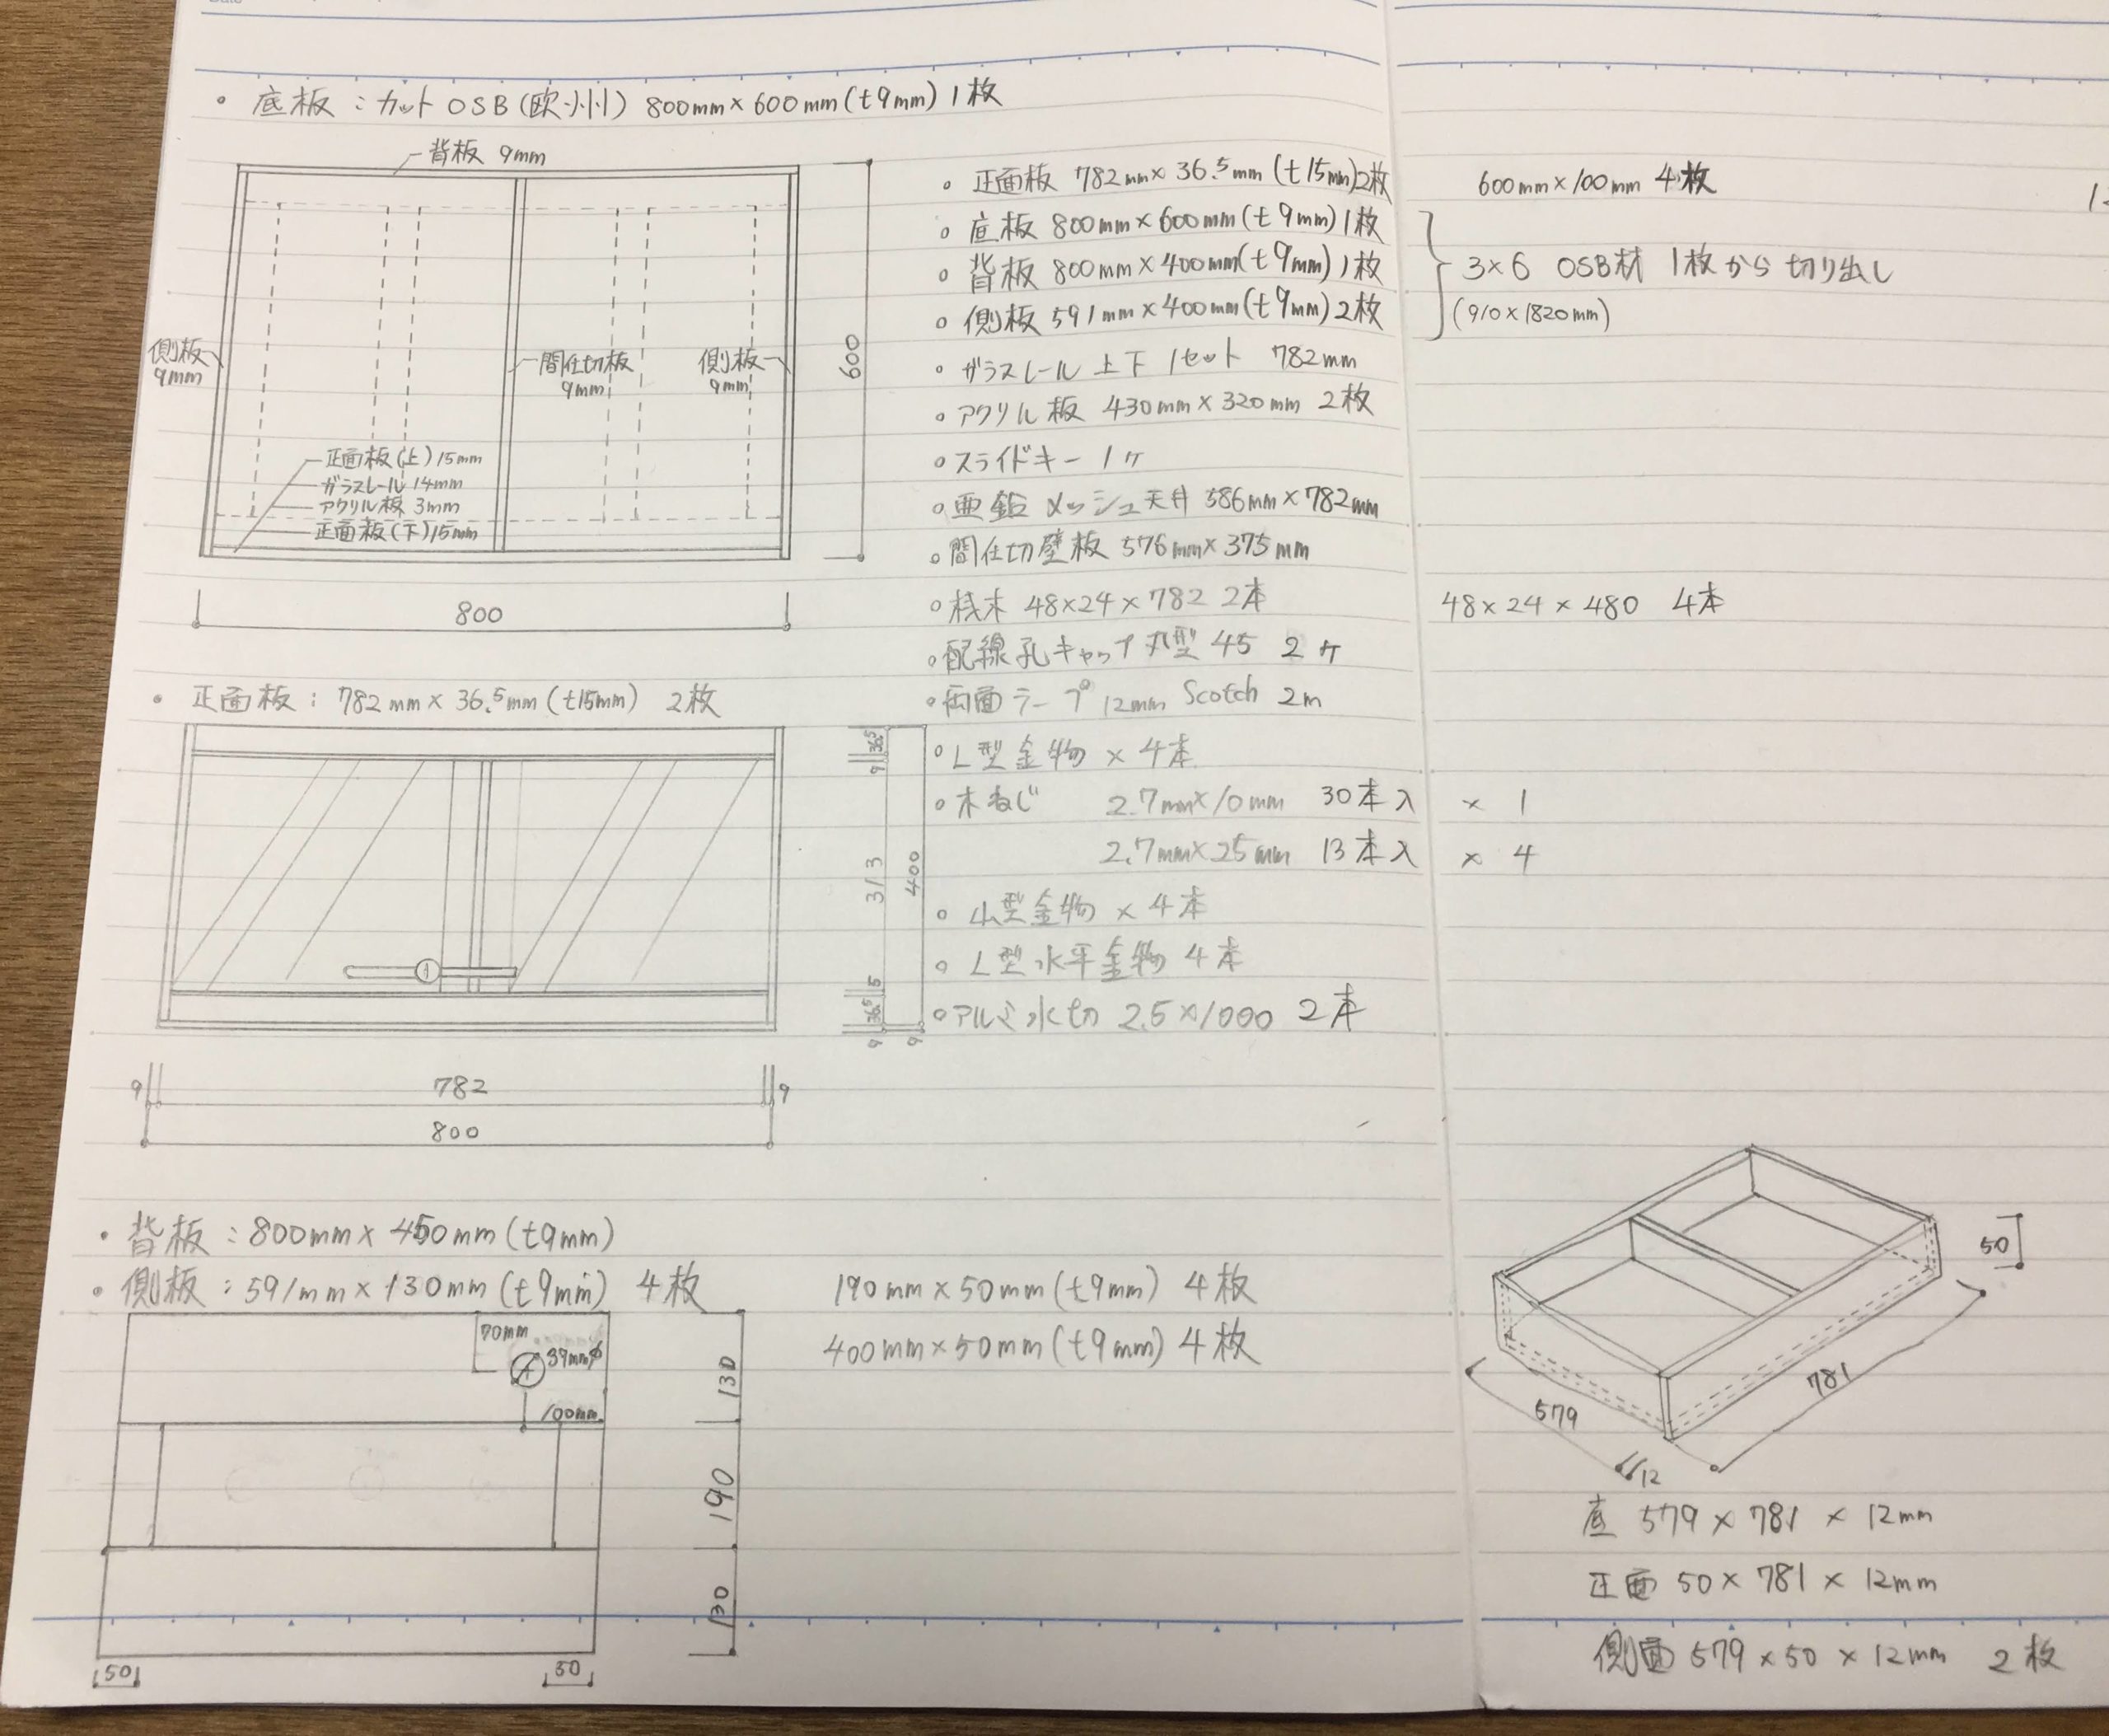 ・底板：カットOSB(欧州) 800mm×600mm(t9mm) 1枚
背板 9mm
側板
9mm
間仕切板
9mm
側板
9mm
正面板(上)15mm
ガラスレール 14mm
アクリル板 3mm
正面板(下)15mm
600
800
・正面板：782mm×36.5mm(t15mm) 2枚
9 36.5
313
400
5
36.5
9
9
9 782 9
800
・背板：800mm×450mm(t9mm)
・側板：591mm×130mm(t9mm) 4枚
190mm×50mm(t9mm) 4枚
400mm×50mm(t9mm) 4枚
70mm
39mmφ
100mm
130
190
130
50
50
○正面板 782mm×36.5mm(t15mm)2枚
600mm×100mm 4枚
○底板 800mm×600mm(t9mm)1枚
○背板 800mm×400mm(t9mm)1枚
○側板 591mm×400mm(t9mm)2枚
3×6 OSB材 1枚から切り出し
(910×1820mm)
○ガラスレール 上下 1セット 782mm
○アクリル板 430mm×320mm 2枚
○スライドキー 1ヶ
○亜鉛メッシュ天井 586mm×782mm
○間仕切壁板 576mm×375mm
○桟木 48×24×782 2本
48×24×480 4本
○配線孔キャップ丸型 45 2ヶ
○両面テープ 12mm Scotch 2m
○L型金物 × 4本
○木ねじ 2.7mm×10mm 30本入 × 1
2.7mm×25mm 13本入 × 4
○山型金物 × 4本
○L型水平金物 4本
○アルミ水切 2.5×1000 2本
50
781
579
12
底 579 × 781 × 12mm
正面 50 × 781 × 12mm
側面 579 × 50 × 12mm 2枚